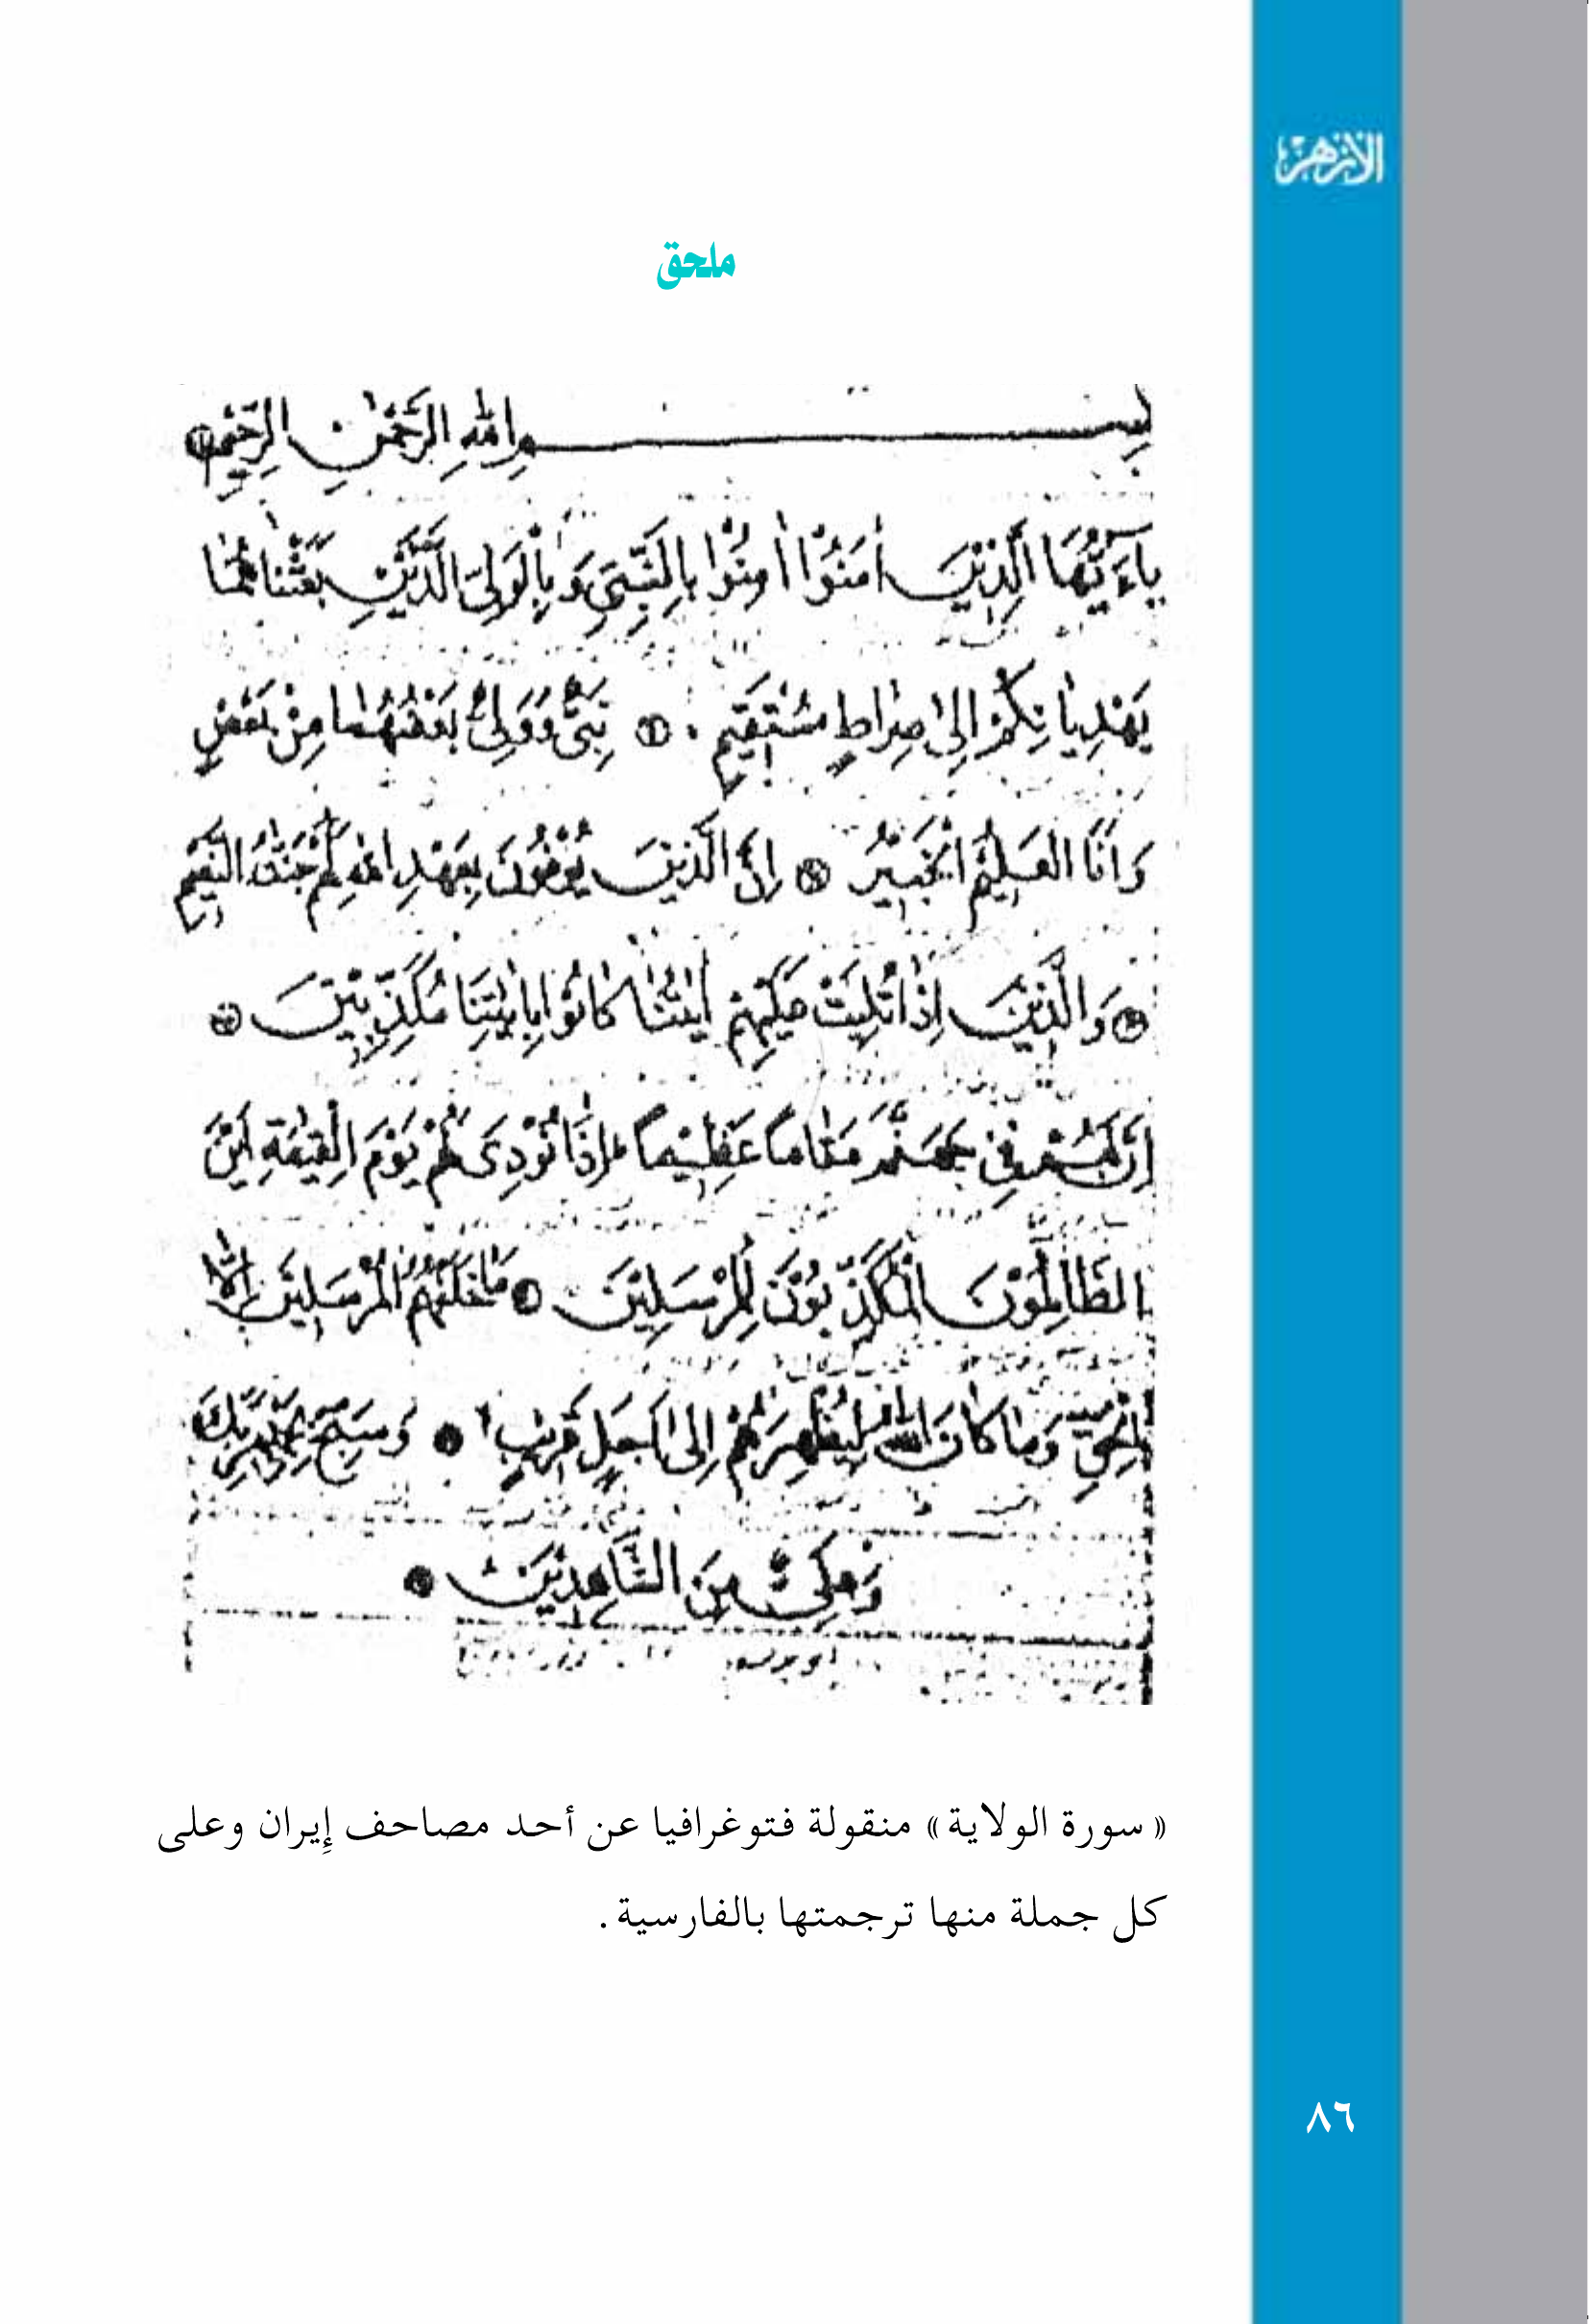 الأزهر
ملحق
بسم الله الرحمن الرحيم
يَآءَيُّهَا الَّذِيْنَ اٰمَنُوْا اٰمِنُوْا بِالنَّبِيِّ وَبِالْوَلِيِّ الَّذَيْنِ بَعَثْنَاهُمَا
يَهْدِيَانِكُمْ اِلىٰ صِرَاطٍ مُسْتَقِيمٍ نَبِيٌّ وَوَلِيٌّ بَعْضُهُمَا مِنْ بَعْضٍ
وَاَنَا الْعَلِيْمُ الْخَبِيْرُ اِنَّ الَّذِينَ يُوْفُوْنَ بِعَهْدِ اللهِ لَهُمْ جَنّٰتُ النَّعِيْمِ
وَالَّذِيْنَ اِذَا تُلِيَتْ عَلَيْهِمْ اٰيٰتُنَا كَانُوْا بِاٰيٰتِنَا مُكَذِّبِيْنَ
اِنَّ لَهُمْ فِي جَهَنَّمَ مَقَامًا عَظِيْمًا اِذَا نُوْدِيَ لَهُمْ يَوْمَ الْقِيٰمَةِ اَيْنَ
الظَّالِمُوْنَ الْمُكَذِّبُوْنَ لِلْمُرْسَلِيْنَ مَا خَلَفَهُمُ الْمُرْسَلِيْنَ اِلَّا
بِالْحَقِّ وَمَا كَانَ اللهُ لِيُظْهِرَهُمْ اِلىٰ اَجَلٍ قَرِيْبٍ وَسَبِّحْ بِحَمْدِ رَبِّكَ
وَعَلِيٌّ مِنَ الشَّاهِدِيْنَ
«سورة الولاية» منقولة فتوغرافيا عن أحد مصاحف إيران وعلى
كل جملة منها ترجمتها بالفارسية.
٨٦